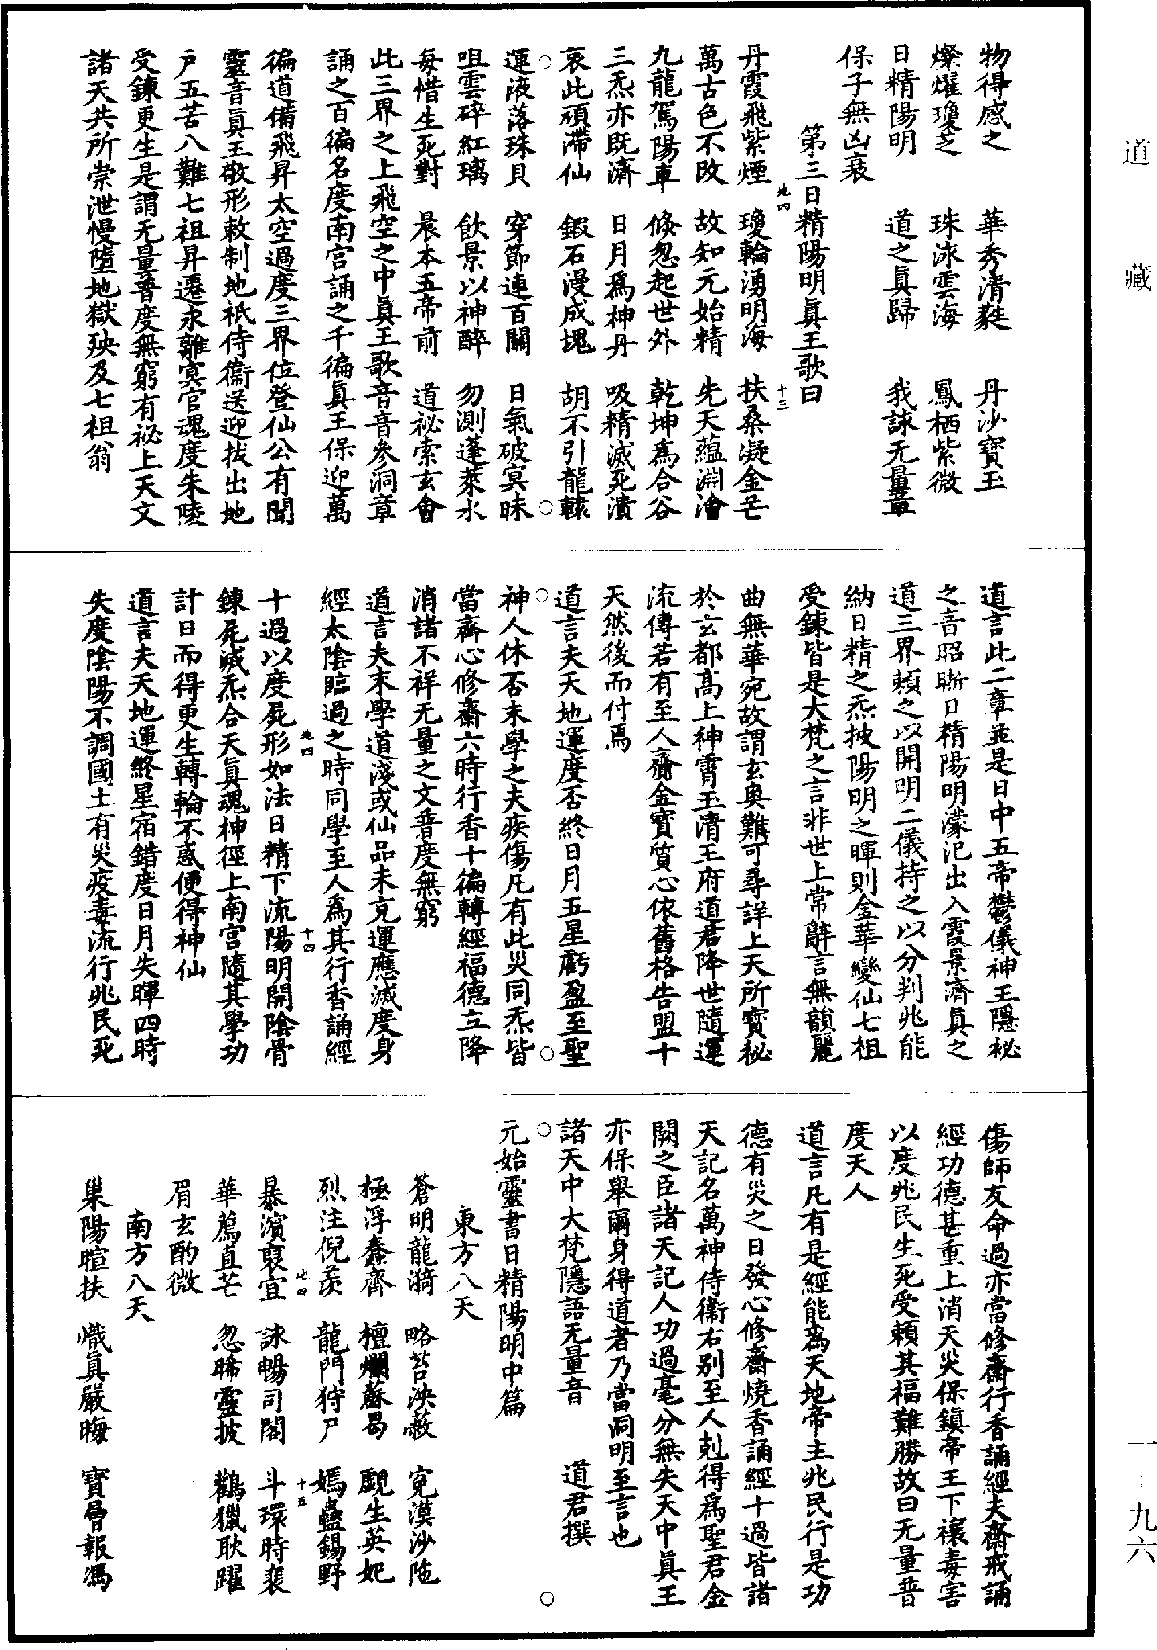 道藏
物得感之　華秀清蕤　丹沙寶玉
燦燿瓊芝　珠泳雲海　鳳栖紫微
日精陽明　道之真歸　我詠无量章
保子無凶衰
第三日精陽明真王歌曰
丹霞飛紫煙　瓊輪湧明海　扶桑凝金芒
地四　十三
萬古色不改　故知元始精　先天蘊淵澮
九龍駕陽車　倏忽起世外　乾坤為合谷
三炁亦既濟　日月為神丹　吸精滅死潰
哀此頑滯仙　鍜石漫成塊　胡不引龍轅
運液落珠貝　穿節連百關　日氣破冥昧
咀雲碎紅璃　飲景以神醉　勿測蓬萊水
每惜生死對　晨本五帝前　道祕索玄會
此三界之上飛空之中真王歌音音參洞章
誦之百徧名度南宮誦之千徧真王保迎萬
徧道備飛昇太空過度三界位登仙公有聞
靈音真王敬形敕制地祇侍衞送迎拔出地
戶五苦八難七祖昇遷永離冥官魂度朱陵
受鍊更生是謂无量普度無窮有祕上天文
諸天共所崇泄慢墮地獄殃及七祖翁
道言此二章並是日中五帝鬱儀神王隱祕
之音昭晰日精陽明濛汜出入霞景濟真之
道三界賴之以開明二儀持之以分判兆能
納日精之炁披陽明之暉則金華變仙七祖
受鍊皆是大梵之言非世上常辭言無韻麗
曲無華宛故謂玄奥難可尋詳上天所寶秘
於玄都高上神霄玉清王府道君降世隨運
流傳若有至人齎金寶質心依舊格告盟十
天然後而付焉
道言夫天地運度否終日月五星虧盈至聖
神人休否末學之夫疾傷凡有此災同炁皆
當齋心修齋六時行香十徧轉經福德立降
消諸不祥无量之文普度無窮
道言夫末學道淺或仙品未充運應滅度身
經太陰臨過之時同學至人為其行香誦經
十過以度屍形如法日精下流陽明開陰骨
地四　十四
鍊屍滅炁合天真魂神徑上南宮隨其學功
計日而得更生轉輪不惑便得神仙
道言夫天地運終星宿錯度日月失暉四時
失度陰陽不調國土有災疫毒流行兆民死
傷師友命過亦當修齋行香誦經夫齋戒誦
經功德甚重上消天災保鎮帝王下禳毒害
以度兆民生死受賴其福難勝故曰无量普
度天人
道言凡有是經能為天地帝主兆民行是功
德有災之日發心修齋燒香誦經十過皆諸
天記名萬神侍衞右别至人剋得為聖君金
闕之臣諸天記人功過毫分無失天中真王
亦保舉爾身得道者乃當洞明至言也
諸天中大梵隱語无量音　道君撰
元始靈書日精陽明中篇
東方八天
蒼明龍漪　略苔泱蔽　寃漠沙陁
極浮蠢齊　檀爛蘇曷　覼生英妃
烈注倪羨　龍門狩尸　嫣蠱錫野
暴濱裒宜　詠暢司閣　斗環時裴
地四　十五
華蔦直芒　忽晞靈披　鸛獵耿躍
眉玄酌微
南方八天
巢陽暄扶　熾真嚴晦　寶曾報馮
一‐九六